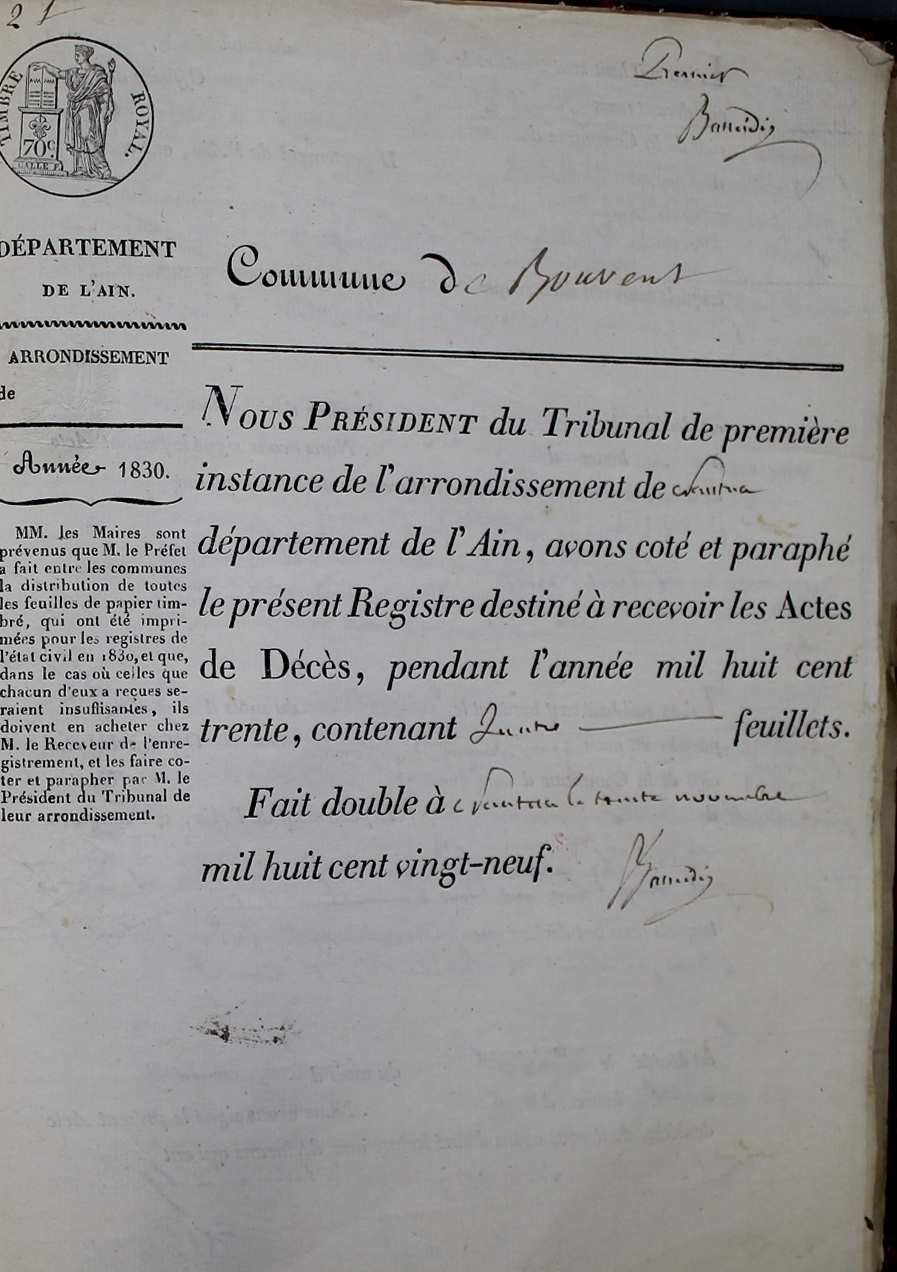 2
TIMBRE ROYAL.
70c.
Premier
DÉPARTEMENT
DE L'AIN.
Commune de Bouvent
ARRONDISSEMENT
de
Année 1830.
MM. les Maires sont
prévenus que M. le Préfet
a fait entre les communes
la distribution de toutes
les feuilles de papier tim-
bré, qui ont été impri-
mées pour les registres de
l'état civil en 1830, et que,
dans le cas où celles que
chacun d'eux a reçues se-
raient insuffisantes, ils
doivent en acheter chez
M. le Receveur de l'enre-
gistrement, et les faire co-
ter et parapher par M. le
Président du Tribunal de
leur arrondissement.
NOUS PRÉSIDENT du Tribunal de première
instance de l'arrondissement de nantua
département de l'Ain, avons coté et paraphé
le présent Registre destiné à recevoir les Actes
de Décès, pendant l'année mil huit cent
trente, contenant feuillets.
Fait double à nantua le trente novembre
mil huit cent vingt-neuf.